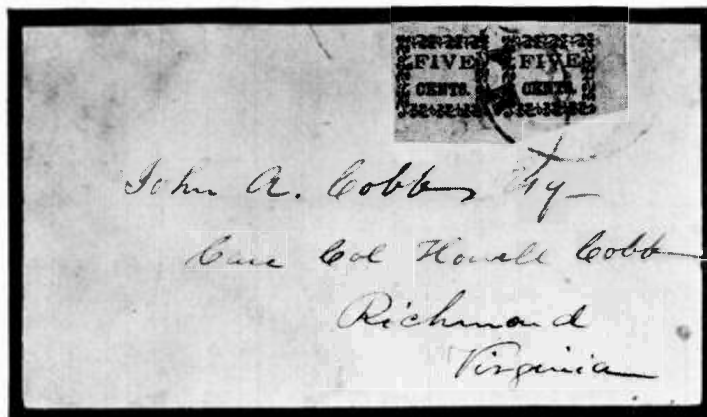 FIVE CENTS. FIVE CENTS.
John A. Cobb Esq
Care Col Howell Cobb
Richmond
Virginia